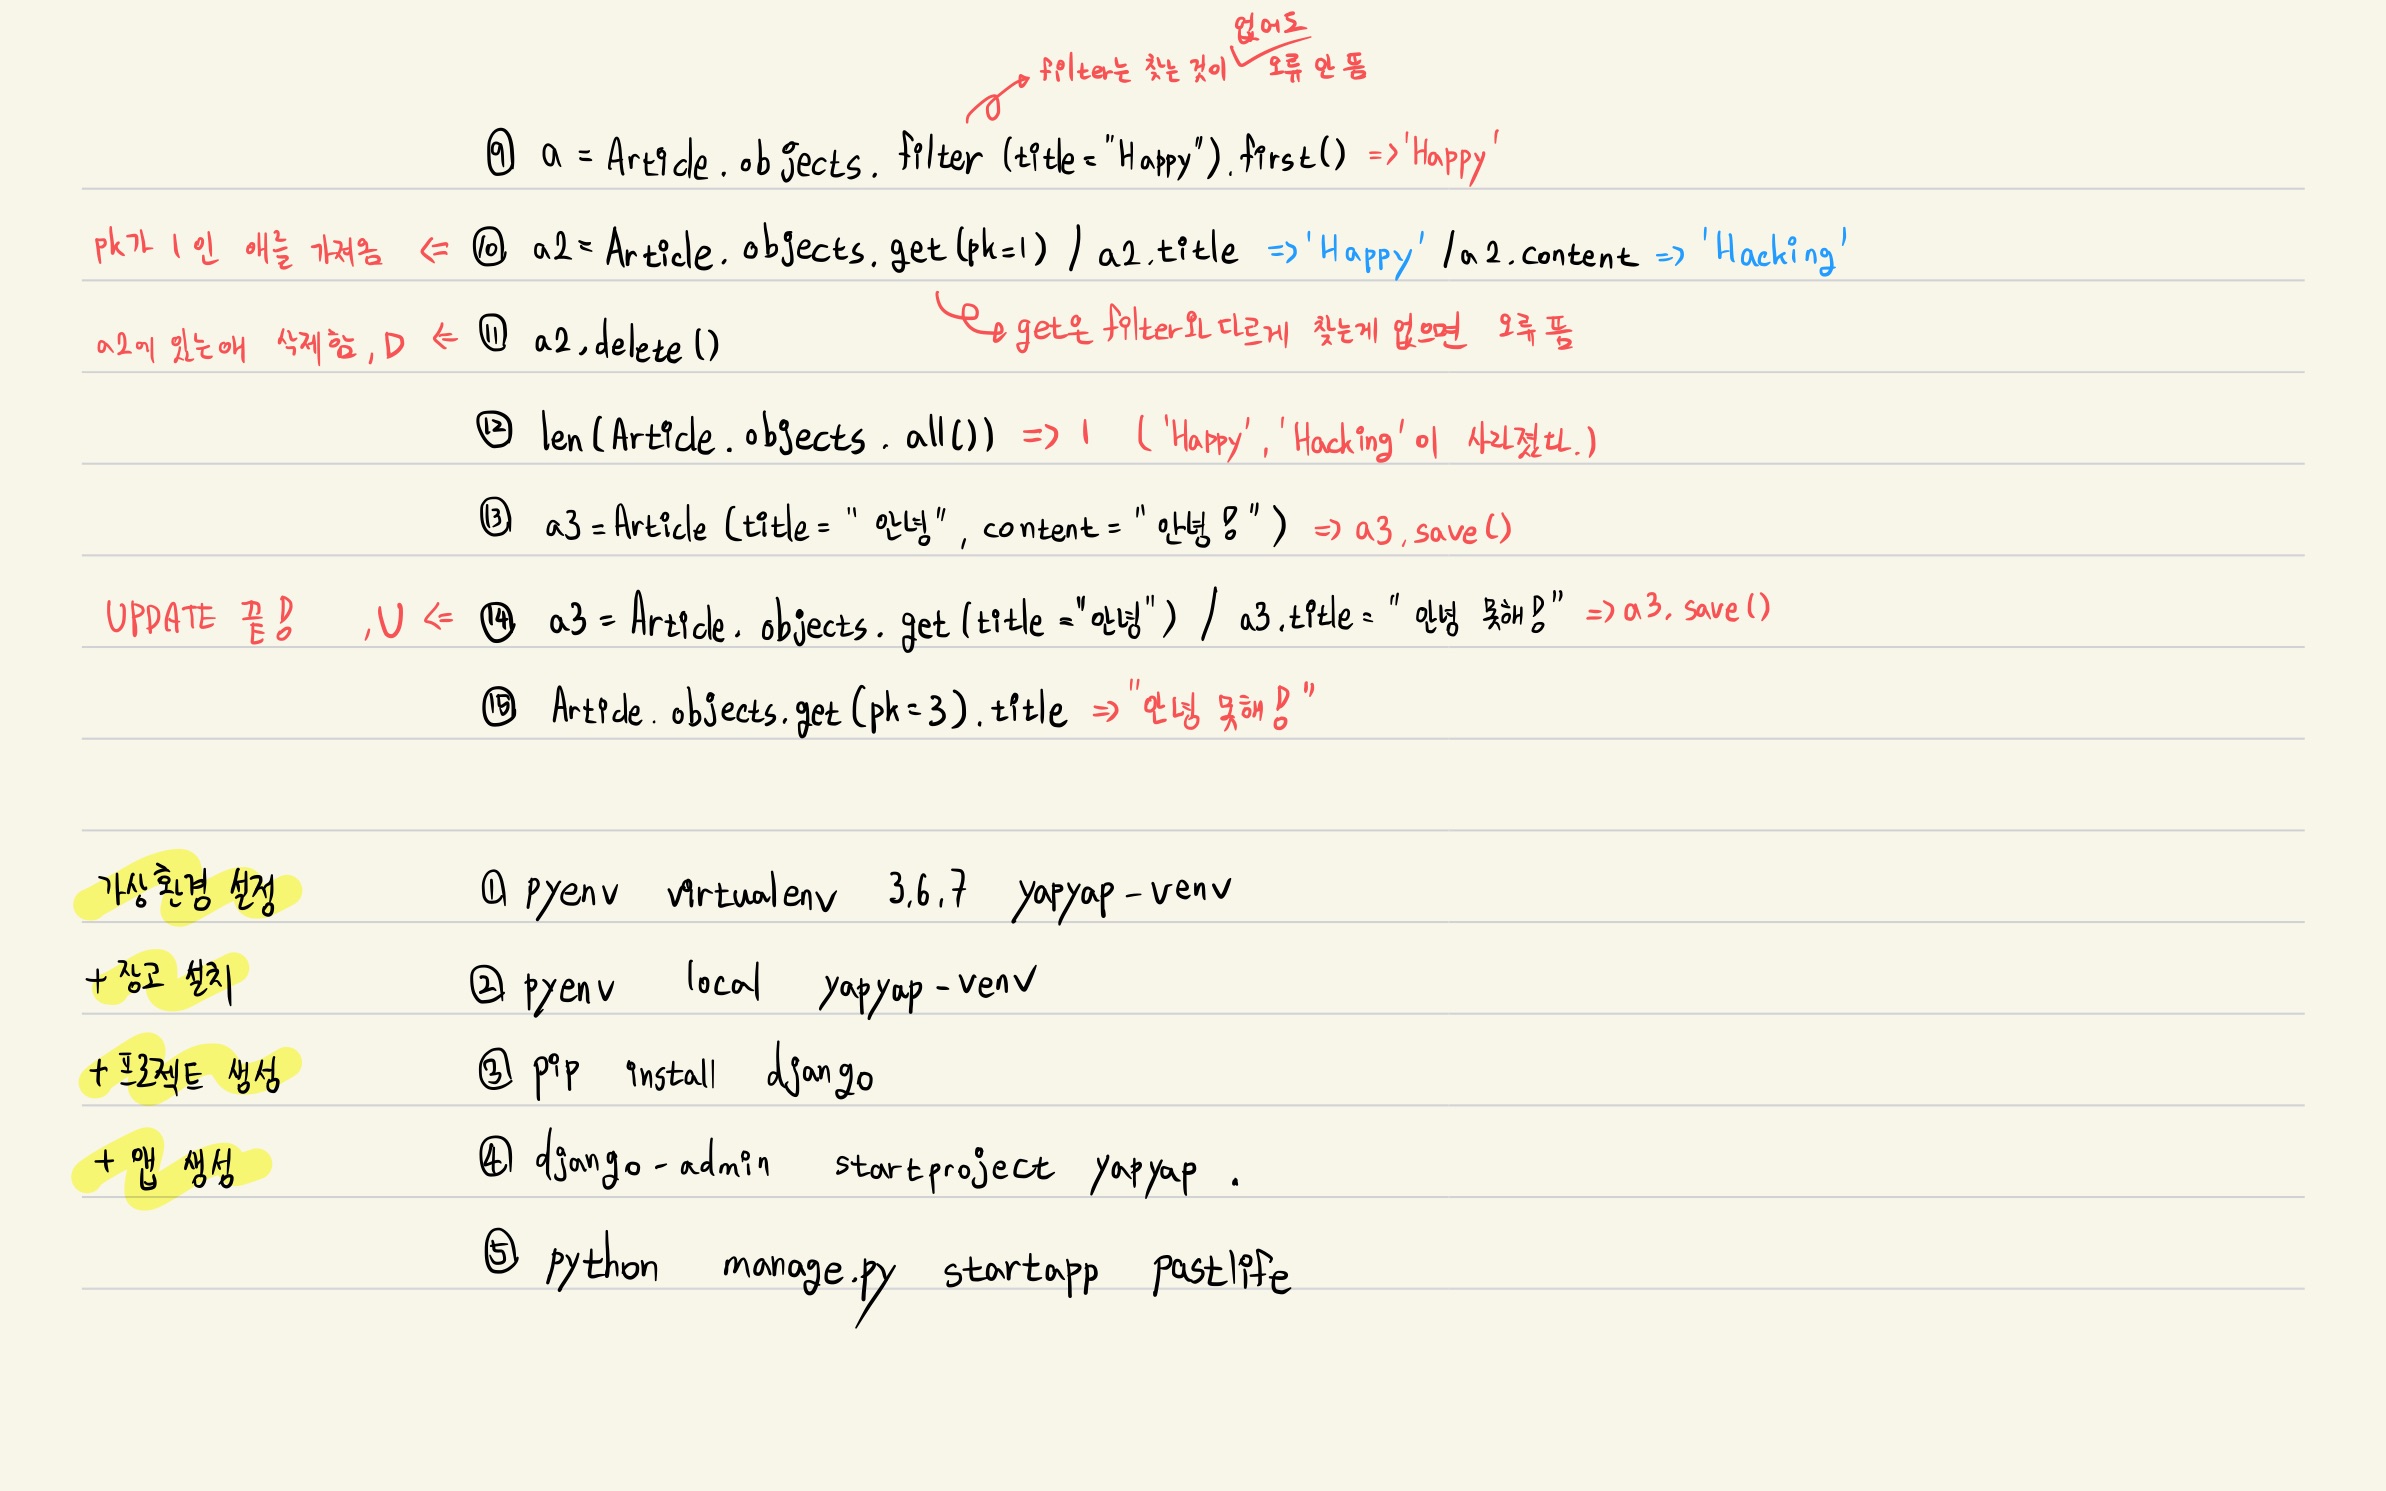 없어도
filter는 찾는 것이 오류 안 뜸
⑨ a = Article.objects.filter(title="Happy").first() => 'Happy'
pk가 1인 애를 가져옴 <= ⑩ a2 = Article.objects.get(pk=1) / a2.title => 'Happy' / a2.content => 'Hacking'
get은 filter와 다르게 찾는게 없으면 오류 뜸
a2에 있는애 삭제함, D <= ⑪ a2.delete()
⑫ len(Article.objects.all()) => 1 ('Happy', 'Hacking'이 사라졌다.)
⑬ a3 = Article(title = "안녕", content = "안녕!") => a3.save()
UPDATE 끝! , U <= ⑭ a3 = Article.objects.get(title = "안녕") / a3.title = "안녕 못해!" => a3.save()
⑮ Article.objects.get(pk=3).title => "안녕 못해!"
가상환경 설정 ① pyenv virtualenv 3.6.7 yapyap-venv
+ 장고 설치 ② pyenv local yapyap-venv
+ 프로젝트 생성 ③ pip install django
+ 앱 생성 ④ django-admin startproject yapyap .
⑤ python manage.py startapp pastlife